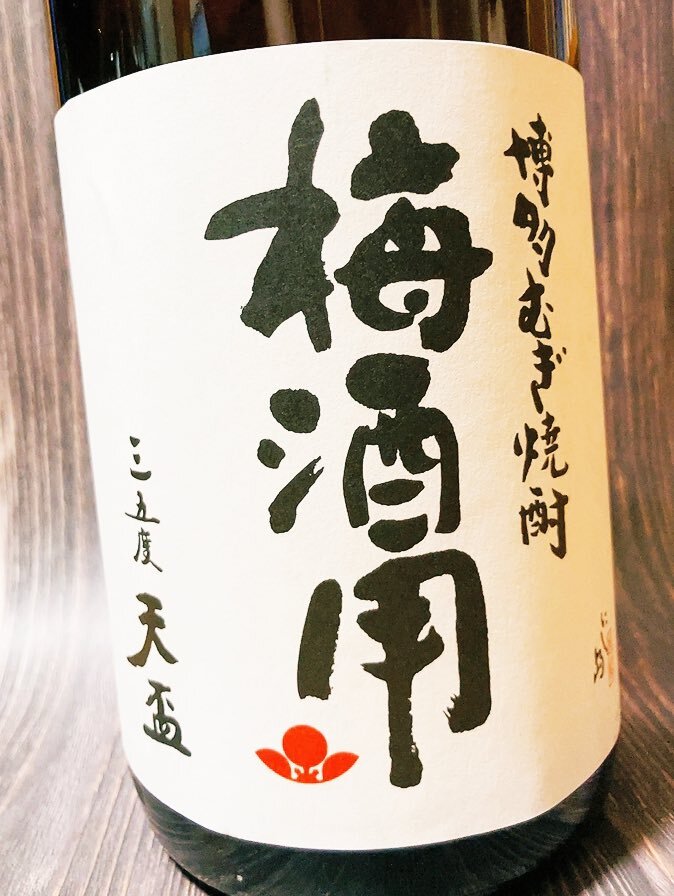 博多むぎ焼酎
梅酒用
三五度 天盃